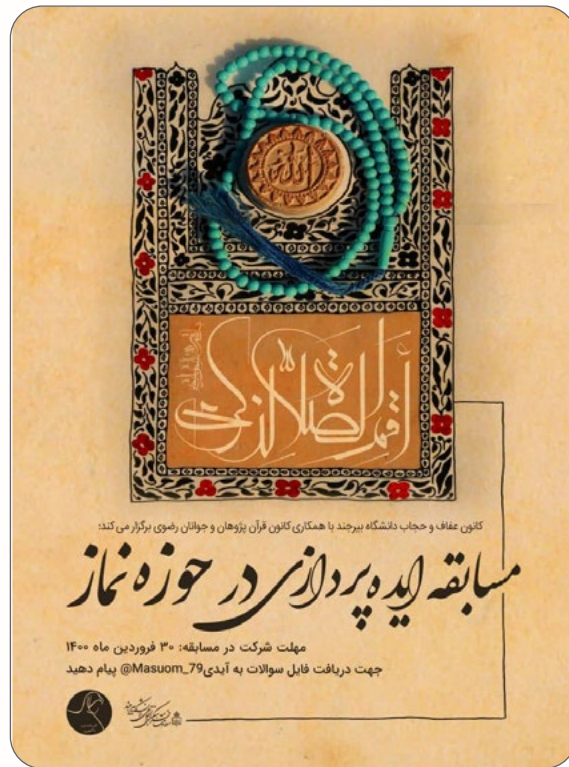 الله
أقم الصلاة لذكري
کانون عفاف و حجاب دانشگاه بیرجند با همکاری کانون قرآن پژوهان و جوانان رضوی برگزار می کند:
مسابقه ایده پردازی در حوزه نماز
مهلت شرکت در مسابقه: ۳۰ فروردین ماه ۱۴۰۰
جهت دریافت فایل سوالات به آیدی Masuom_79@ پیام دهید